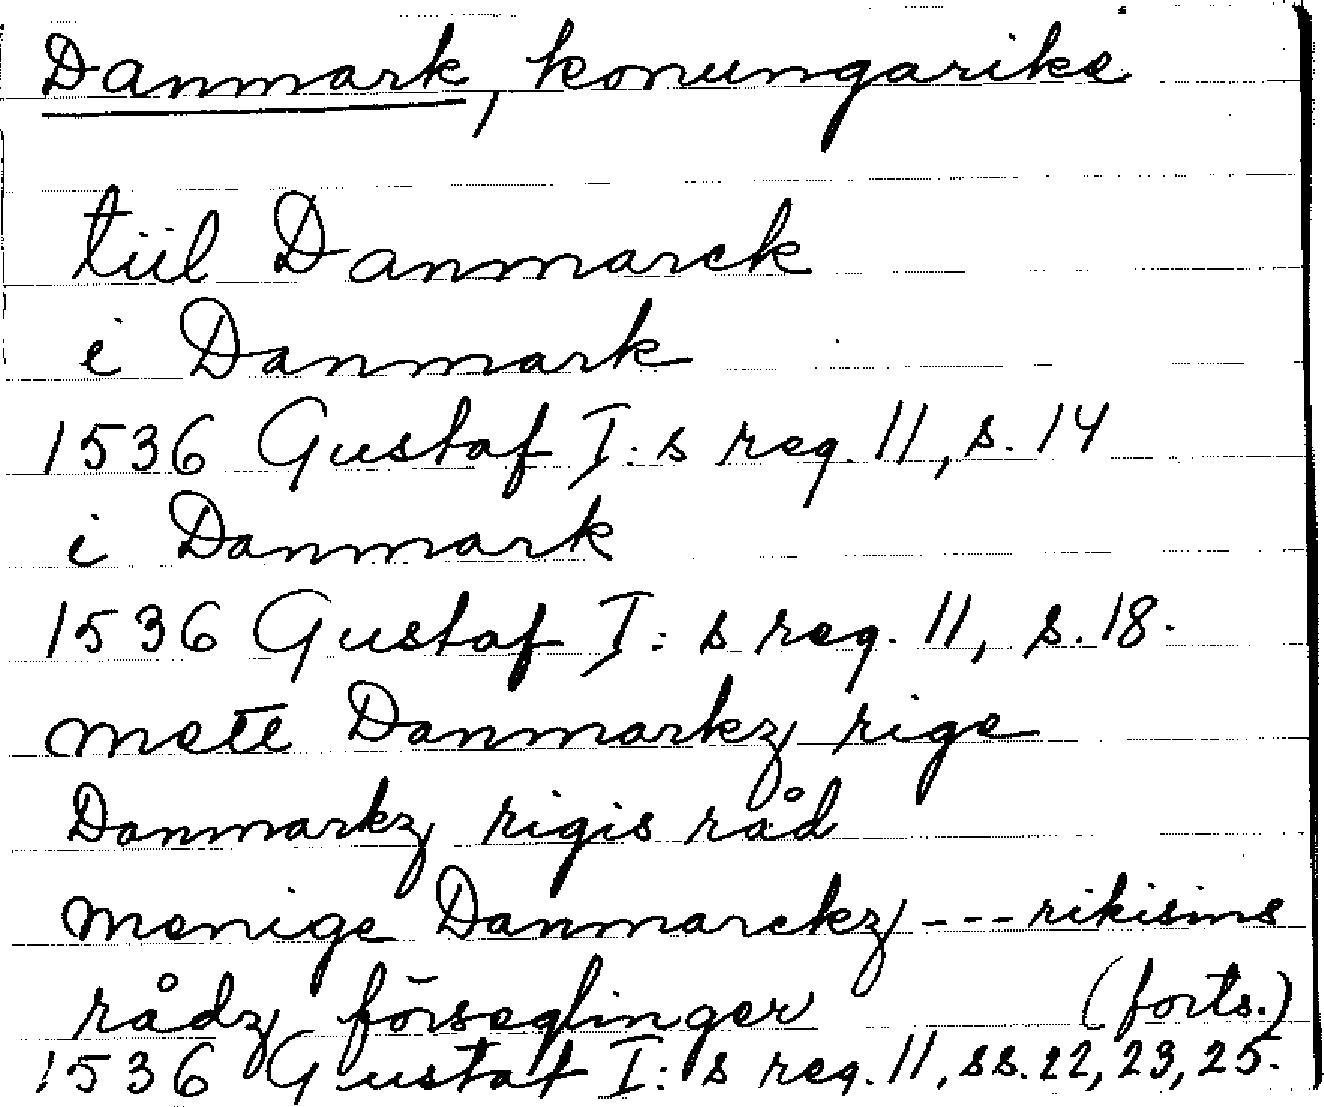 Danmark, konungarike
tiil Danmarck
i Danmark
1536 Gustaf I:s reg. 11, s. 14
i Danmark
1536 Gustaf I:s reg. 11, s. 18.
mett Danmarkz rige
Danmarkz rigis råd
menige Danmarckz --- rikisins
rådz förseglinger (forts.)
1536 Gustaf I:s reg. 11, ss. 22, 23, 25.